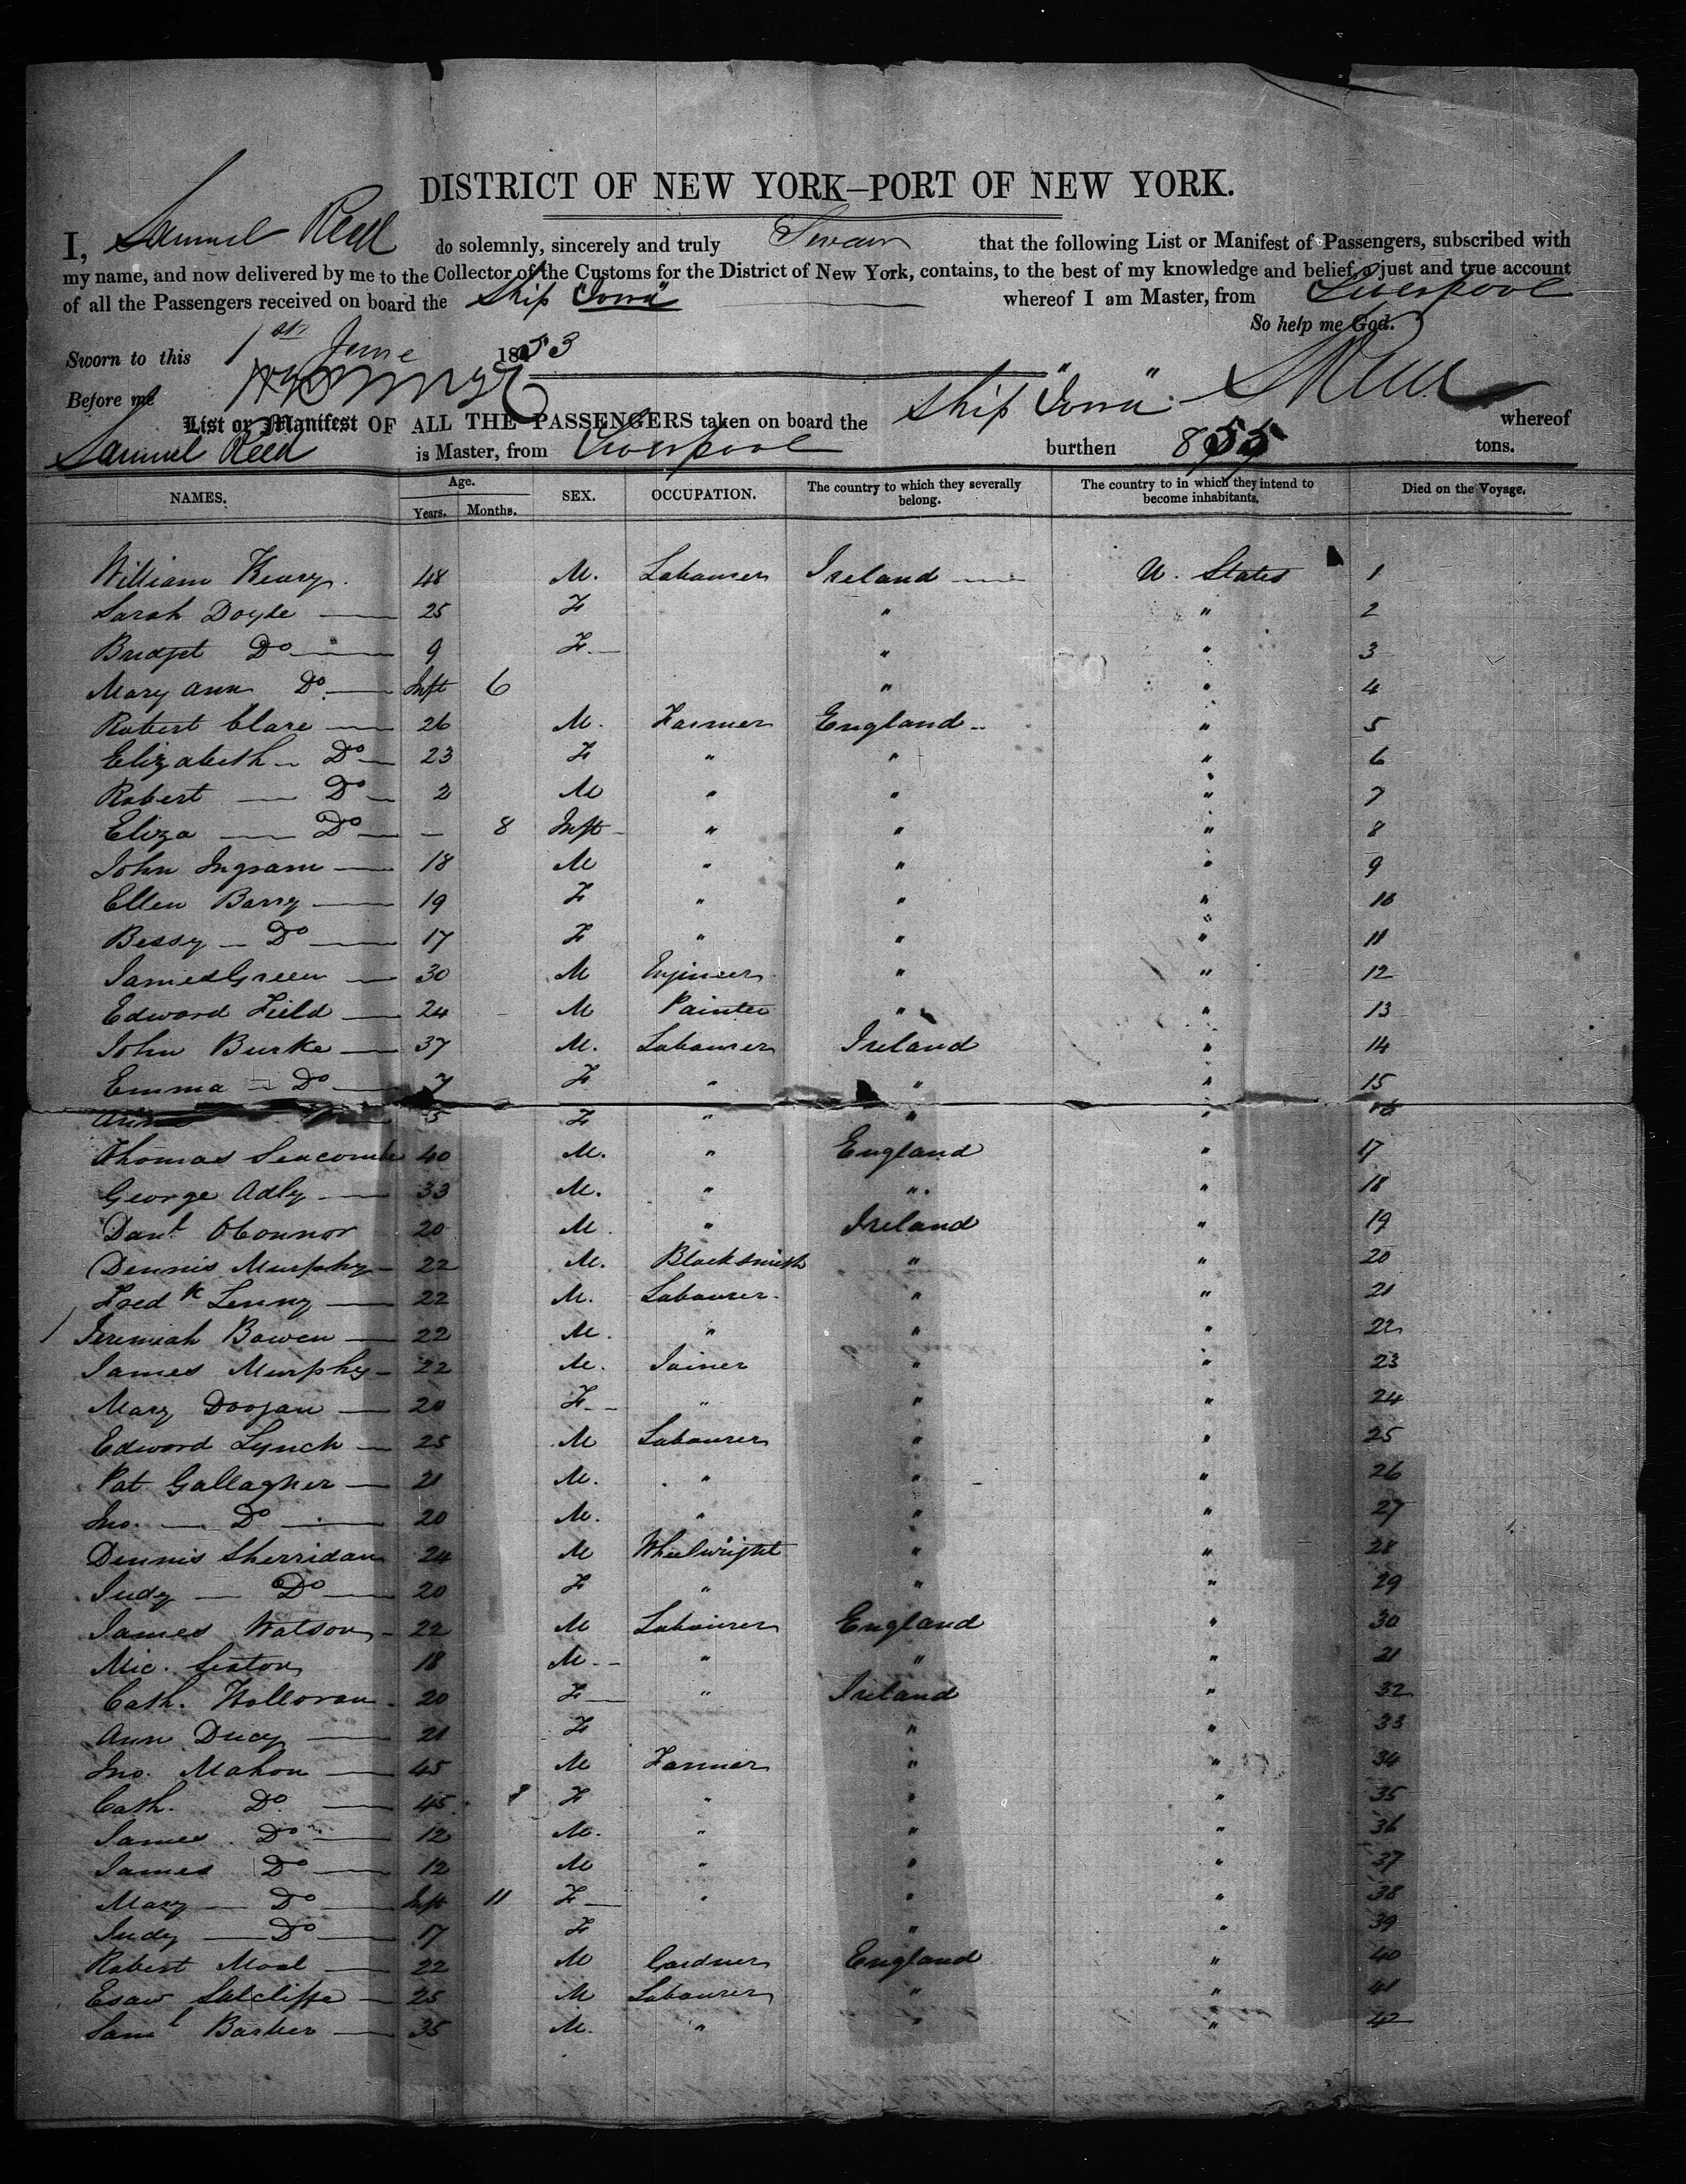 DISTRICT OF NEW YORK–PORT OF NEW YORK.
I, Samuel Reed do solemnly, sincerely and truly Swear that the following List or Manifest of Passengers, subscribed with
my name, and now delivered by me to the Collector of the Customs for the District of New York, contains, to the best of my knowledge and belief, a just and true account
of all the Passengers received on board the Ship "Iowa" whereof I am Master, from Liverpool
So help me God.
Sworn to this 1st June 1853
Before me
List or Manifest OF ALL THE PASSENGERS taken on board the Ship "Iowa" whereof
Samuel Reed is Master, from Liverpool burthen 855 tons.
NAMES. Age. Years. Months. SEX. OCCUPATION. The country to which they severally belong. The country to in which they intend to become inhabitants. Died on the Voyage.
William 48 M. Labourer Ireland U. States 1
Sarah Doyle 25 F " " 2
Bridget Do 9 F " " 3
Mary Ann Do Inft 6 " " 4
Robert Clare 26 M. Farmer England " 5
Elizabeth Do 23 F " " " 6
Robert Do 2 M " " " 7
Eliza Do – 8 Inft " " " 8
John Ingram 18 M " " " 9
Ellen Barry 19 F " " " 10
Bessy Do 17 F " " " 11
James Green 30 M Engineer " " 12
Edward Field 24 M Painter " " 13
John Burke 37 M. Labourer Ireland " 14
Emma Do 7 F " " " 15
Ann 5 F " " " 16
Thomas Seacombe 40 M. " England " 17
George Adly 33 M. " " " 18
Danl OConnor 20 M " Ireland " 19
Dennis Murphy 22 M. Blacksmith " " 20
Fredk Lenny 22 M. Labourer " " 21
Jeremiah Bowen 22 M. " " " 22
James Murphy 22 M. Joiner " " 23
Mary Doogan 20 F " " " 24
Edward Lynch 25 M Labourer " " 25
Pat Gallagher 21 M. " " " 26
Jno. Do 20 M. " " " 27
Dennis Sherridan 24 M Wheelwright " " 28
Judy Do 20 F " " " 29
James Watson 22 M Labourer England " 30
Mic. Sexton 18 M " " " 21
Cath. Holloran 20 F " Ireland " 32
Ann Ducy 21 F " " 33
Jno. Mahon 45 M Farmer " " 34
Cath. Do 45 F " " " 35
James Do 12 M. " " " 36
James Do 12 M " " " 37
Mary Do Inft 11 F " " " 38
Judy Do 17 F " " 39
Robert 22 M Gardner England " 40
Esaw Sutcliffe 25 M Labourer " " 41
Saml Barker 35 M. " " " 42